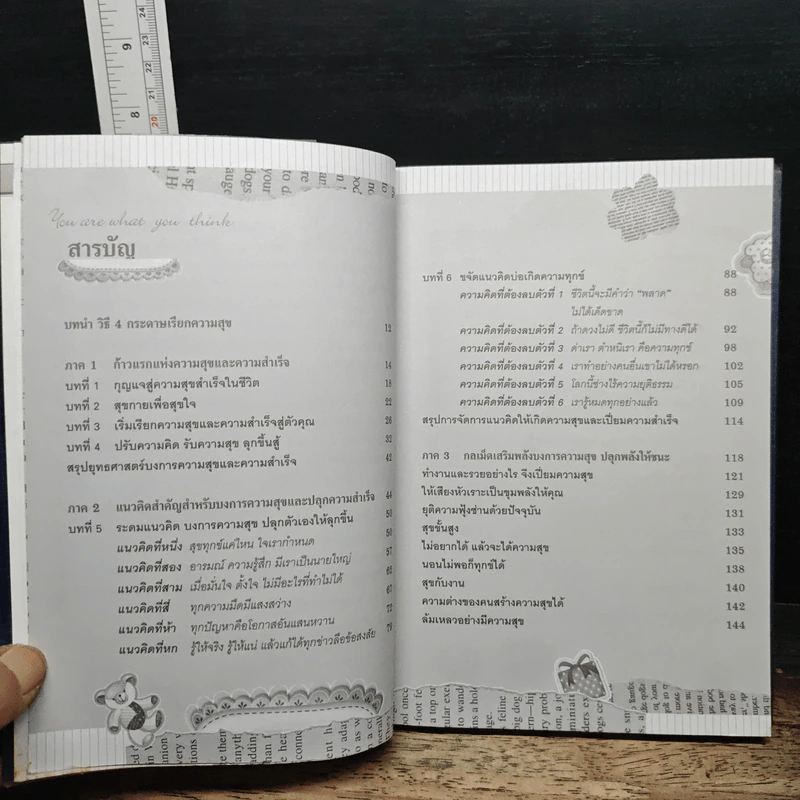 You are what you think
สารบัญ
บทนำ วิธี 4 กระดาษเรียกความสุข 12
ภาค 1 ก้าวแรกแห่งความสุขและความสำเร็จ 14
บทที่ 1 กุญแจสู่ความสุขสำเร็จในชีวิต 18
บทที่ 2 สุขกายเพื่อสุขใจ 22
บทที่ 3 เริ่มเรียกความสุขและความสำเร็จสู่ตัวคุณ 26
บทที่ 4 ปรับความคิด รับความสุข ลุกขึ้นสู้ 32
สรุปยุทธศาสตร์บงการความสุขและความสำเร็จ 42
ภาค 2 แนวคิดสำคัญสำหรับบงการความสุขและปลุกความสำเร็จ 44
บทที่ 5 ระดมแนวคิด บงการความสุข ปลุกตัวเองให้ลุกขึ้น 50
แนวคิดที่หนึ่ง สุขทุกข์แค่ไหน ใจเรากำหนด 50
แนวคิดที่สอง อารมณ์ ความรู้สึก มีเราเป็นนายใหญ่ 57
แนวคิดที่สาม เมื่อมั่นใจ ตั้งใจ ไม่มีอะไรที่ทำไม่ได้ 62
แนวคิดที่สี่ ทุกความมืดมีแสงสว่าง 67
แนวคิดที่ห้า ทุกปัญหาคือโอกาสอันแสนหวาน 72
แนวคิดที่หก รู้ให้จริง รู้ให้แน่ แล้วแก้ได้ทุกข่าวลือข้อสงสัย 79
บทที่ 6 ขจัดแนวคิดบ่อเกิดความทุกข์ 88
ความคิดที่ต้องลบตัวที่ 1 ชีวิตนี้จะมีคำว่า "พลาด" 88
ไม่ได้เด็ดขาด
ความคิดที่ต้องลบตัวที่ 2 ถ้าดวงไม่ดี ชีวิตนี้ก็ไม่มีทางดีได้ 92
ความคิดที่ต้องลบตัวที่ 3 ด่าเรา ตำหนิเรา คือความทุกข์ 98
ความคิดที่ต้องลบตัวที่ 4 เราทำอย่างคนอื่นเขาไม่ได้หรอก 102
ความคิดที่ต้องลบตัวที่ 5 โลกนี้ช่างไร้ความยุติธรรม 105
ความคิดที่ต้องลบตัวที่ 6 เรารู้หมดทุกอย่างแล้ว 109
สรุปการจัดการแนวคิดให้เกิดความสุขและเปี่ยมความสำเร็จ 114
ภาค 3 กลเม็ดเสริมพลังบงการความสุข ปลุกพลังให้ชนะ 118
ทำงานและรวยอย่างไร จึงเปี่ยมความสุข 121
ให้เสียงหัวเราะเป็นขุมพลังให้คุณ 129
ยุติความฟุ้งซ่านด้วยปัจจุบัน 131
สุขขั้นสูง 133
ไม่อยากได้ แล้วจะได้ความสุข 135
นอนไม่พอก็ทุกข์ได้ 138
สุขกับงาน 140
ความต่างของคนสร้างความสุขได้ 142
ล้มเหลวอย่างมีความสุข 144